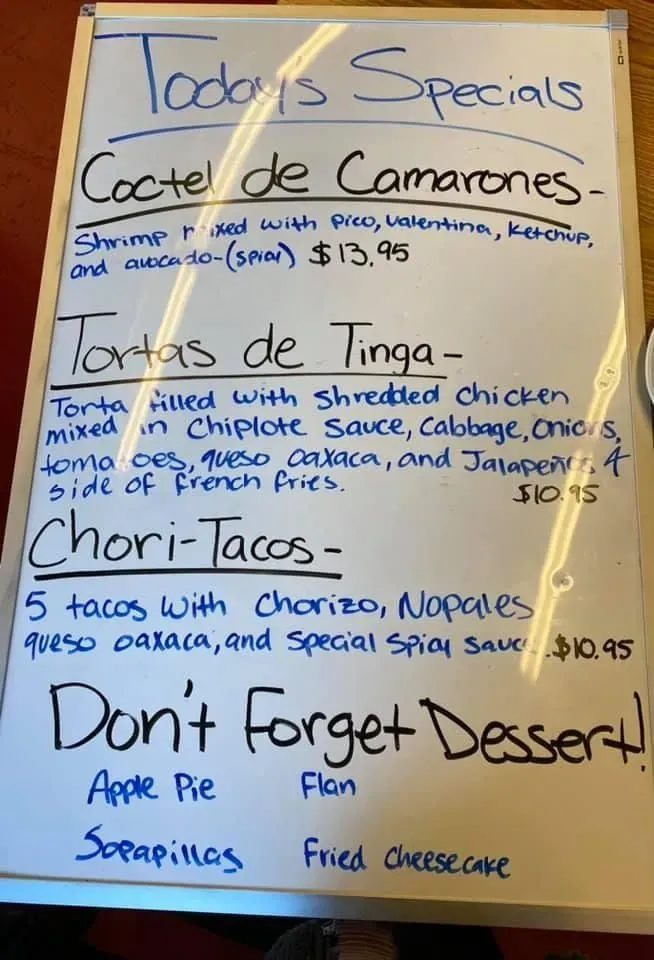 Today's Specials
Coctel de Camarones-
Shrimp mixed with Pico, Valentina, Ketchup,
and avocado-(spicy) $13.95
Tortas de Tinga-
Torta filled with shredded chicken
mixed in Chiplote sauce, Cabbage, Onions,
tomatoes, queso oaxaca, and Jalapeños &
side of french fries.
$10.95
Chori-Tacos-
5 tacos with Chorizo, Nopales
queso oaxaca, and special spicy sauce. $10.95
Don't Forget Dessert!
Apple Pie Flan
Sopapillas Fried Cheesecake